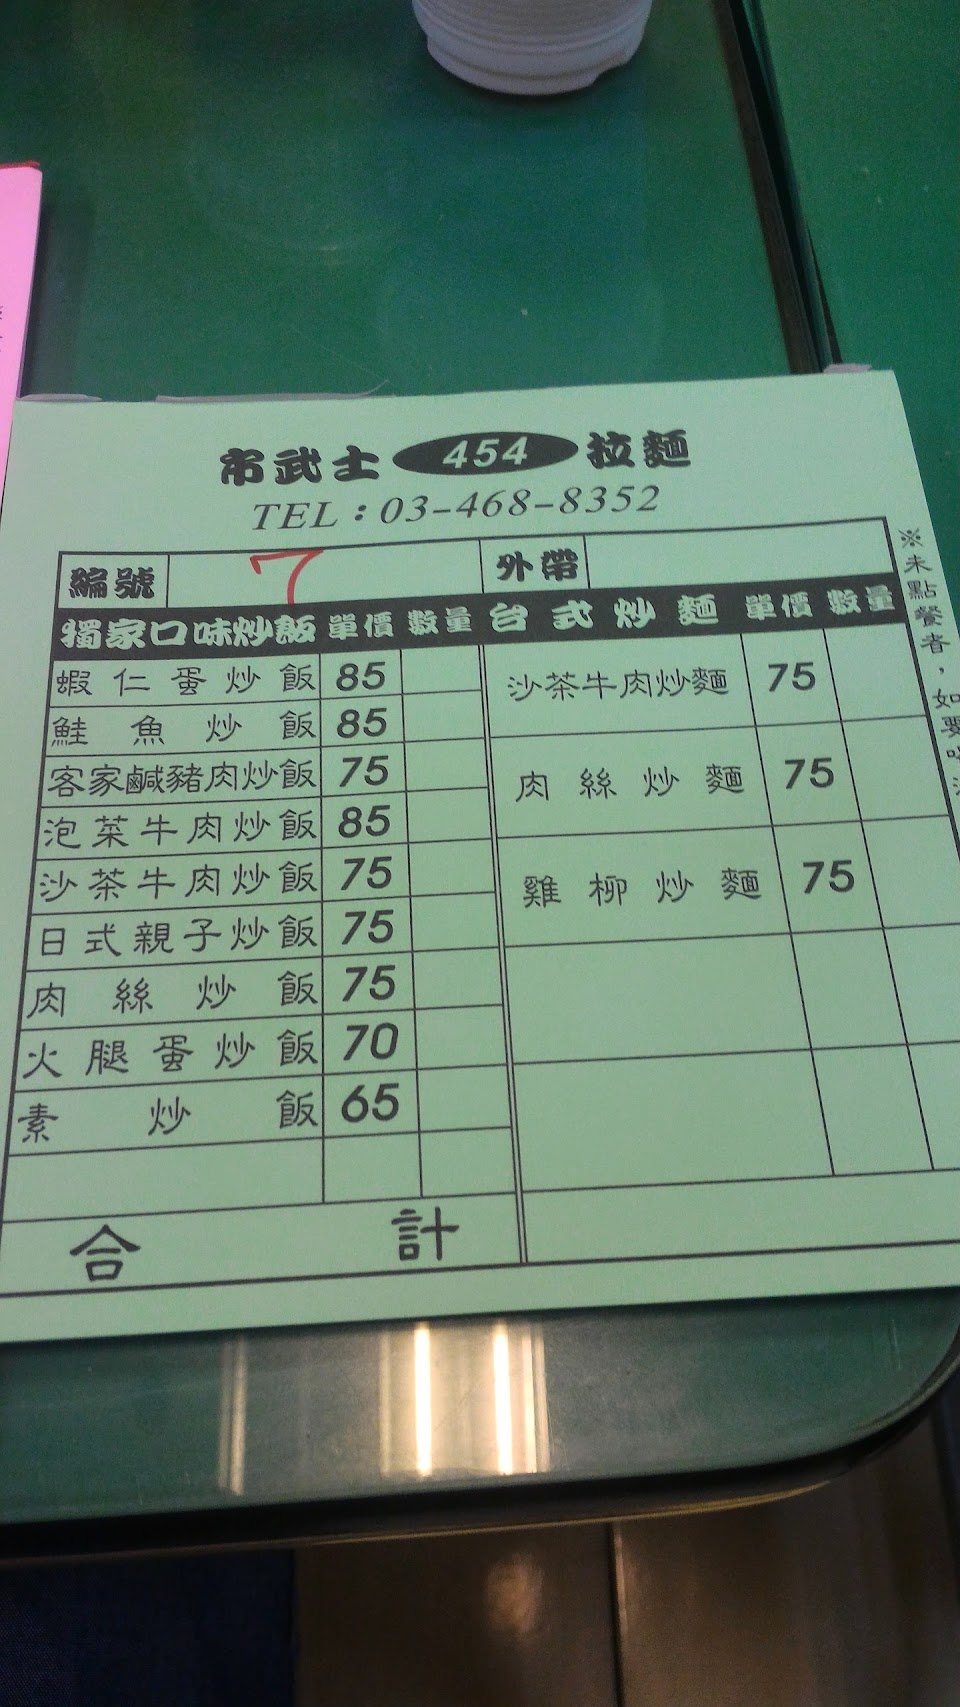 市武士 454 拉麵
TEL：03-468-8352
編號 7 外帶
獨家口味炒飯 單價 數量 台式炒麵 單價 數量
蝦仁蛋炒飯 85
鮭魚炒飯 85
客家鹹豬肉炒飯 75
泡菜牛肉炒飯 85
沙茶牛肉炒飯 75
日式親子炒飯 75
肉絲炒飯 75
火腿蛋炒飯 70
素炒飯 65
合計
沙茶牛肉炒麵 75
肉絲炒麵 75
雞柳炒麵 75
※未點餐者，如要